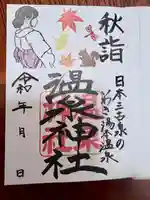 秋詣
日本三古泉の
いわき湯本温泉
温泉神社
令和 年 月 日